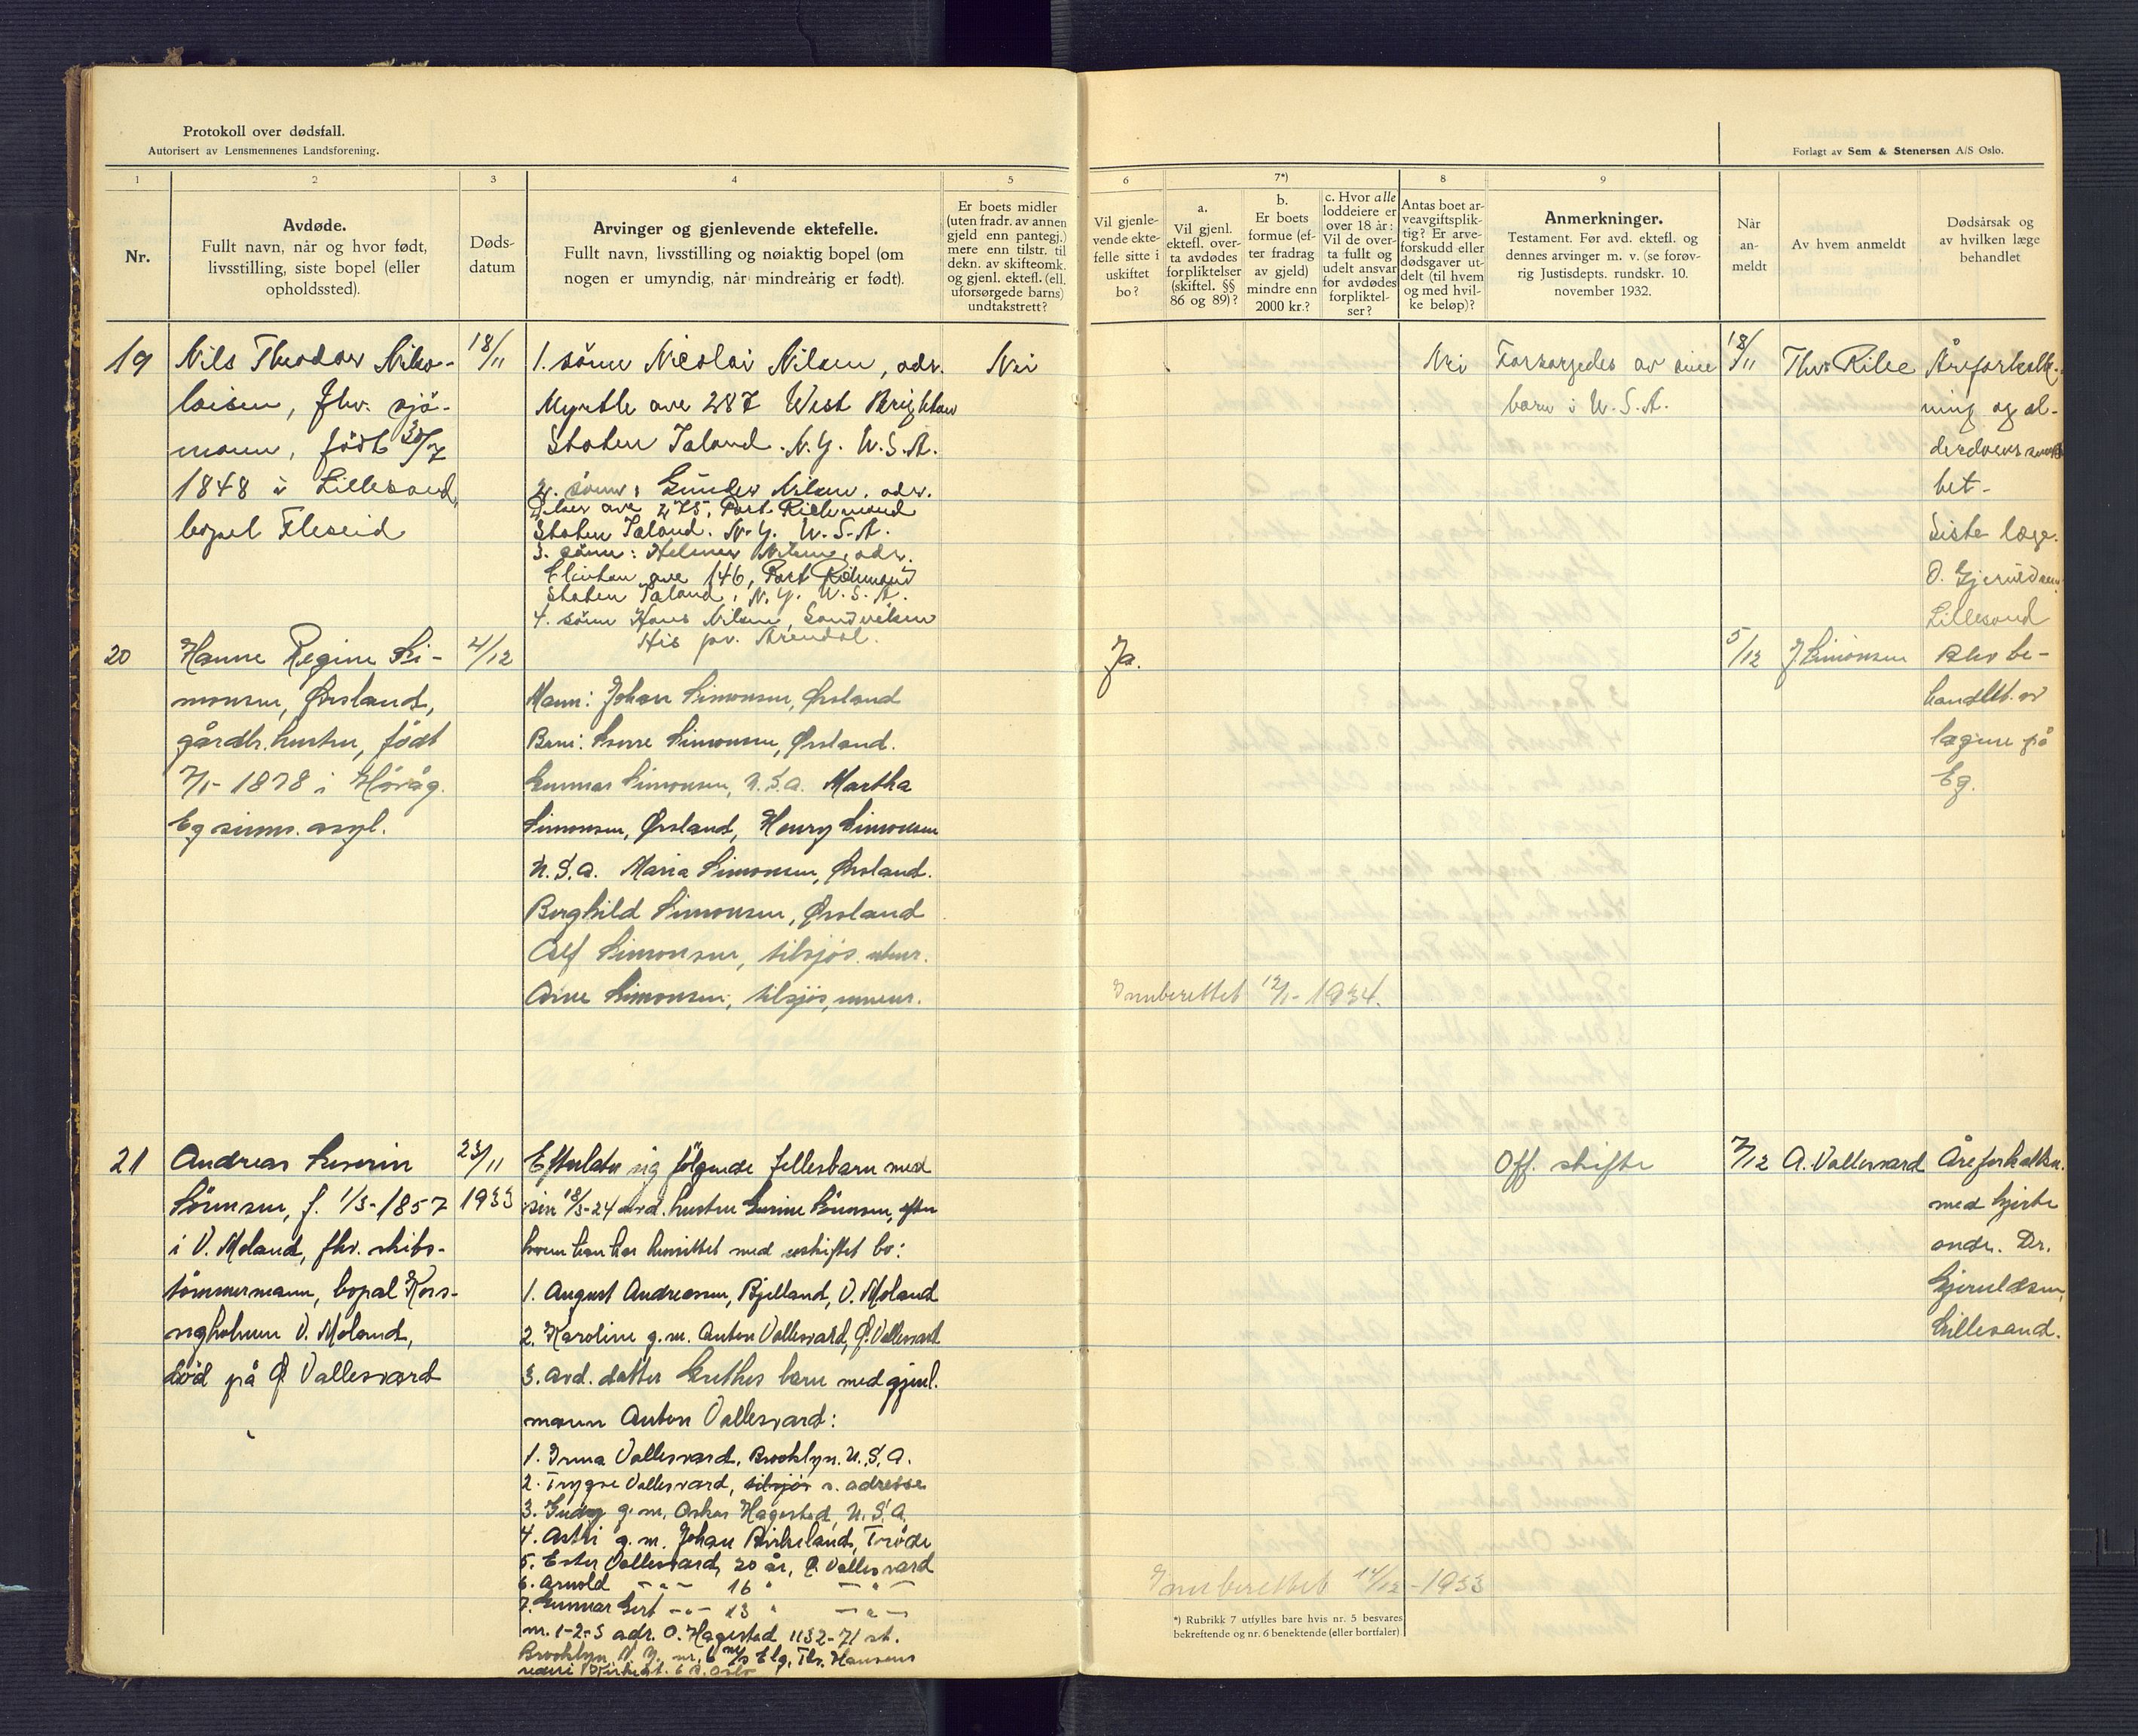 Protokoll over dødsfall.
Autorisert av Lensmennenes Landsforening.
Forlagt av Sem & Stenersen A/S Oslo.
1
2
3
4
5
6
7*)
8
9
Nr.
Avdøde.
Fullt navn, når og hvor født,
livsstilling, siste bopel (eller
opholdssted).
Døds-
datum
Arvinger og gjenlevende ektefelle.
Fullt navn, livsstilling og nøiaktig bopel (om
nogen er umyndig, når mindreårig er født).
Er boets midler
(uten fradr. av annen
gjeld enn pantegj.)
mere enn tilstr. til
dekn. av skifteomk.
og gjenl. ektefl. (ell.
uforsørgede barns)
undtakstrett?
Vil gjenle-
vende ekte-
felle sitte i
uskiftet
bo?
a.
Vil gjenl.
ektefl. over-
ta avdødes
forpliktelser
(skiftel. §§
86 og 89)?
b.
Er boets
formue (ef-
ter fradrag
av gjeld)
mindre enn
2000 kr.?
c. Hvor alle
loddeiere er
over 18 år:
Vil de over-
ta fullt og
udelt ansvar
for avdødes
forpliktel-
ser?
Antas boet ar-
veavgiftsplik-
tig? Er arve-
forskudd eller
dødsgaver ut-
delt (til hvem
og med hvil-
ke beløp)?
Anmerkninger.
Testament. Før avd. ektefl. og
dennes arvinger m. v. (se forøv-
rig Justisdepts. rundskr. 10.
november 1932.
Når
an-
meldt
Av hvem anmeldt
Dødsårsak og
av hvilken læge
behandlet
19
Nils Theodor Niko-
laisen, fhv. sjö-
mann, födt 30/7
1848 i Lillesand,
bopel Fleseid
18/11
1. sönn Nicolai Nilsen, adr.
Myrtle ave 287 West Brighton
Staten Island. N.Y. U.S.A.
2. sönn: Gunder Nilsen. adr.
ave 275, Port Richmond
Staten Island. N.Y. U.S.A.
3. sönn: Helmer Nilsen, adr.
Clinton ave 146, Port Richmond
Staten Island, N.Y. U.S.A.
4. sönn Hans Nilsen, Sandviken
His pr. Arendal.
Nei
Nei
Forsørgedes av sine
barn i U.S.A.
18/11
Thv. Rike
Åreforkalk-
ning og al-
derdomssvak
het-
Siste læge.
O. Gjeruldsen
Lillesand
20
Hanne Regine Si-
monsen, Ørsland,
gårdbr. hustru, födt
7/1- 1878 i Hövåg.
Eg sinns. asyl.
4/12
Mann: Johan Simonsen, Ørsland
Barn: Sverre Simonsen, Ørsland.
Gunnar Simonsen, U.S.A. Martha
Simonsen, Ørsland, Henry Simonsen
U.S.A. Maria Simonsen, Ørsland.
Borghild Simonsen, Ørsland
Alf Simonsen, tilsjös. utenr.
Arne Simonsen, tilsjös, innenr.
Ja.
Innberettet 12/1- 1934.
5/12
J Simonsen
Blev be-
handlet av
lægene på
Eg.
21
Andreas Severin
Sörensen, f. 1/3-1857
i V. Moland, fhv. skibs-
tömmermann, bopel Kors-
vigholmen V. Moland,
död på Ø Vallesværd
23/11
1933
Efterlater sig fölgende fellesbarn med
sin 18/3-24 avd. hustru Gurine Sörensen, efter
hvem han har hensittet med uskiftet bo:
1. August Andreassen, Bjelland, V. Moland
2. Karoline g.m. Anton Vallesværd, Ø. Vallesværd
3. Avd. datter Grethes barn med gjenl.
mann Anton Vallesværd:
1. Irma Vallesværd, Brooklyn. U.S.A.
2. Trygve Vallesværd, tilsjös s. adresse
3. Gudny g.m. Oskar Hagestad, U.S.A.
4. Astri g.m. Johan Birkeland, Tröde
5. Ester Vallesværd, 20 år, Ø. Vallesværd
6. Arnold -"- 16 " -"-
7. Gunnar Gert -"- 13 " -"-
nr. 1-2-3 adr. O. Hagestad 1132-71 st.
Brooklyn, N.Y. nr. 6 m/s Elg, Th. Hansens
rederi Kirkegt. 6 B. Oslo
Off. skifte
Innberettet 14/12-1933
7/12
A. Vallesværd
Åreforkalkn.
med hjerte
ondr. Dr.
Gjeruldsen,
Lillesand.
*) Rubrikk 7 utfylles bare hvis nr. 5 besvares
bekreftende og nr. 6 benektende (eller bortfaler)